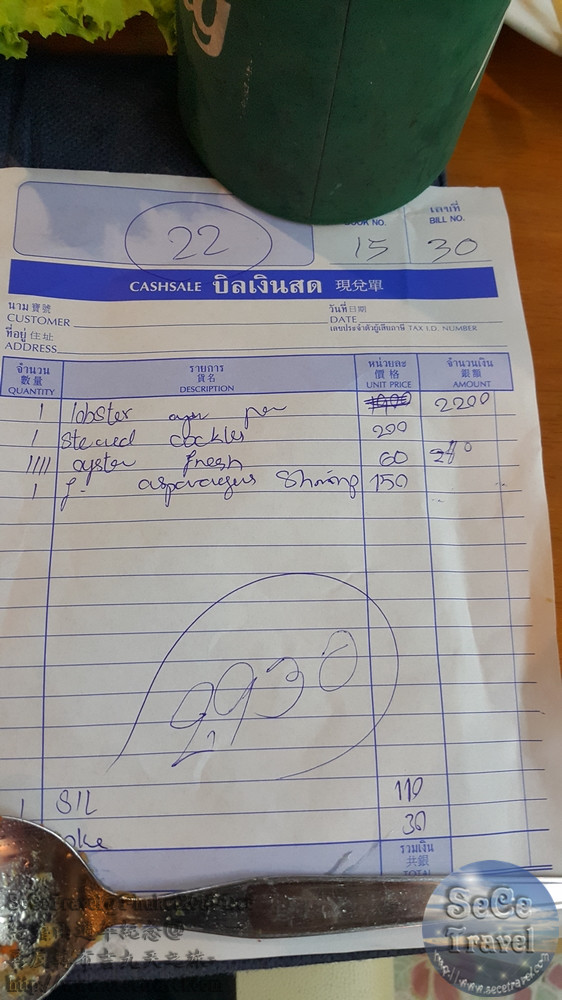 22
เลขที่
BOOK NO. BILL NO.
15 30
CASHSALE บิลเงินสด 現兌單
นาม 寶號 วันที่ 日期
CUSTOMER DATE
ที่อยู่ 住址 เลขประจำตัวผู้เสียภาษี TAX I.D. NUMBER
ADDRESS
จำนวน รายการ หน่วยละ จำนวนเงิน
數量 貨名 價格 銀額
QUANTITY DESCRIPTION UNIT PRICE AMOUNT
1 lobster 2200
1 Steamed cockles 200
1111 oyster fresh 60 240
1 f. asparagus Shrimp 150
2,930
1 SIL 110
oke 30
รวมเงิน
共銀
TOTAL
SeCe
Travel
http://www.secetravel.com